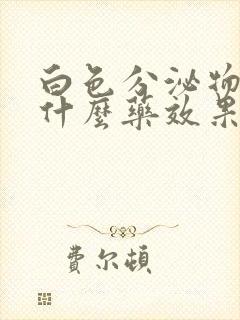 白色分泌物
什麼藥效果
費尔頓